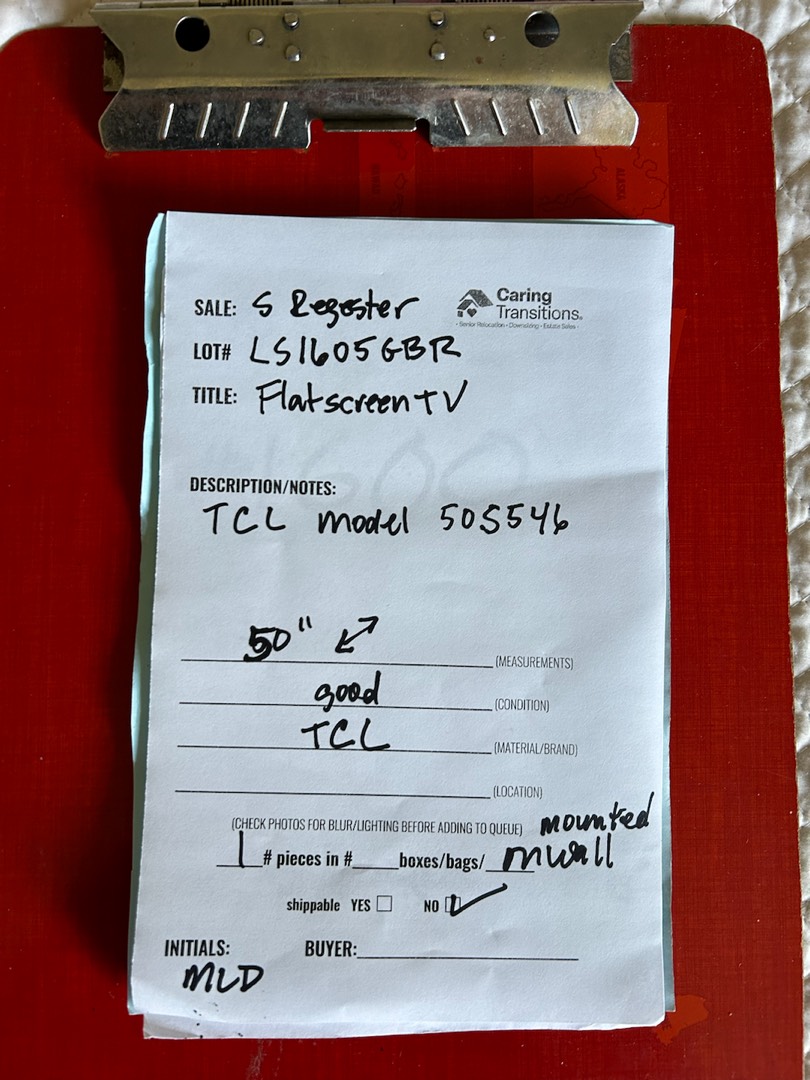 ALASKA
SALE: S Regester
Caring
Transitions®
• Senior Relocation • Downsizing • Estate Sales •
LOT# LS1605GBR
TITLE: Flatscreen TV
1600
DESCRIPTION/NOTES:
TCL model 50S546
50" (MEASUREMENTS)
good (CONDITION)
TCL (MATERIAL/BRAND)
(LOCATION)
(CHECK PHOTOS FOR BLUR/LIGHTING BEFORE ADDING TO QUEUE) mounted
1 # pieces in # boxes/bags/ on wall
shippable YES NO
INITIALS: BUYER:
MLD